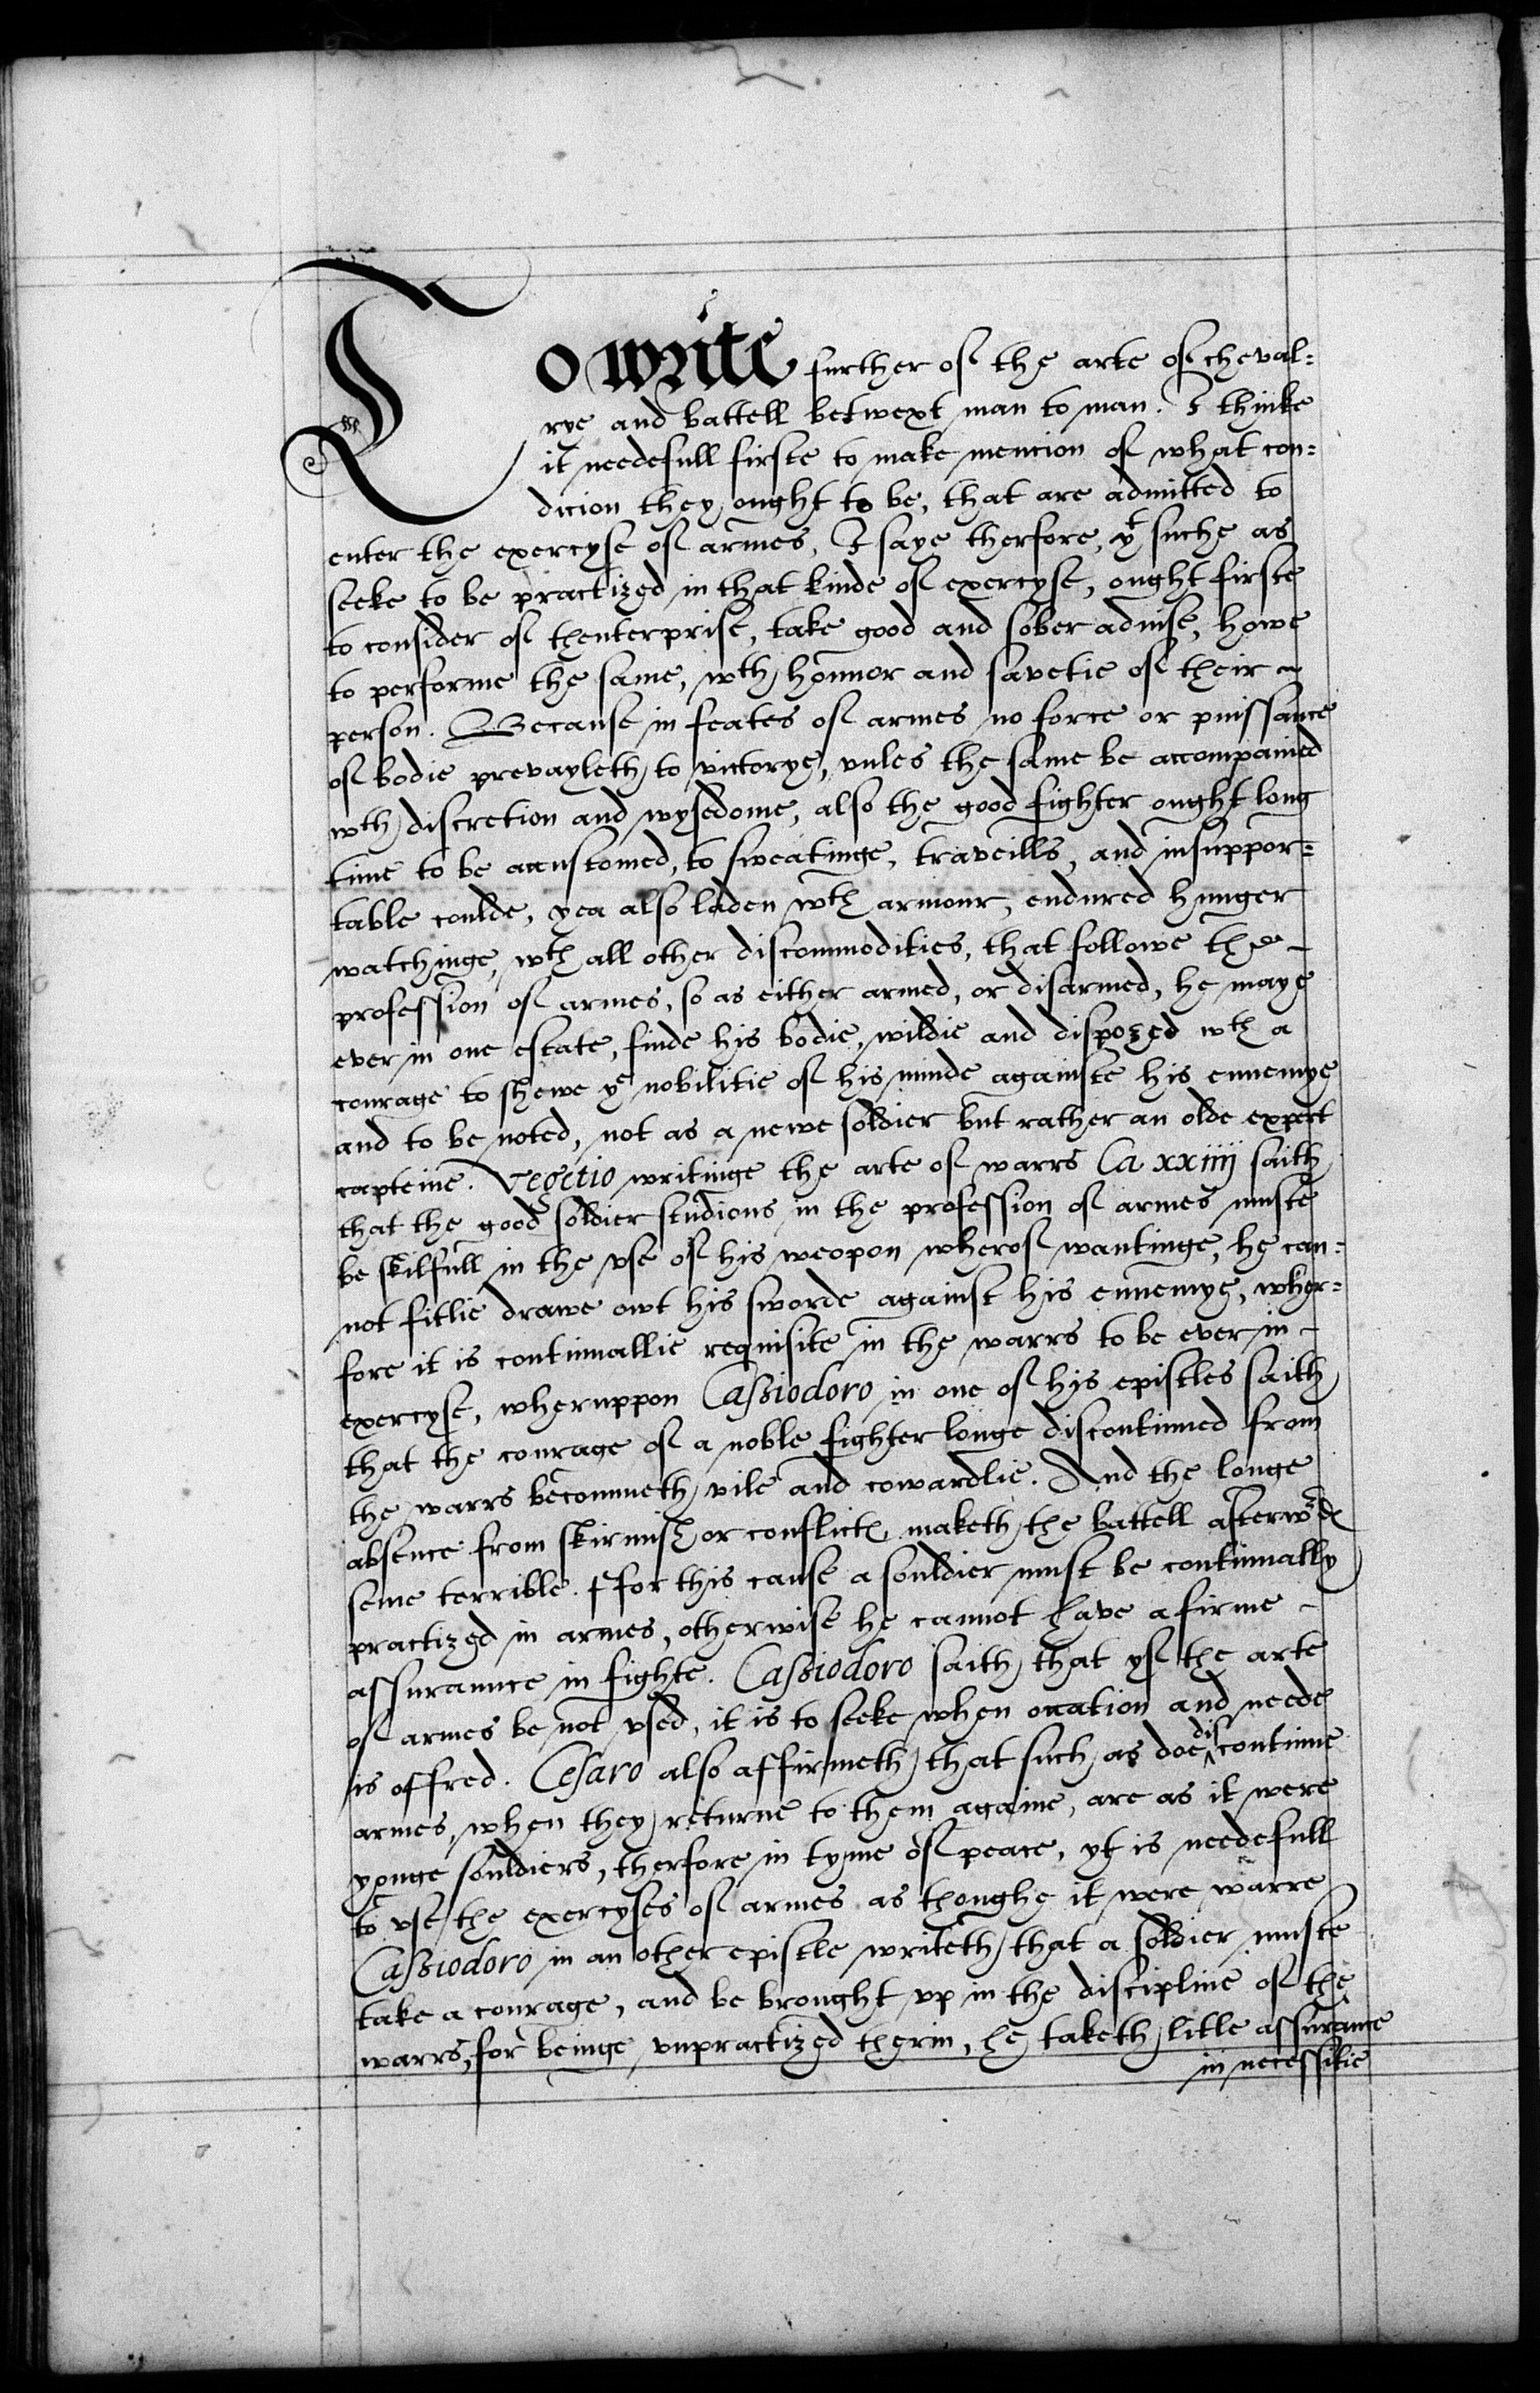 To write further of the arte of cheval=
rye and battell betwext man to man. I thinke
it needefull firste to make mencion of what con=
dicion they ought to be, that are admitted to
enter the exercyse of armes, I saye therfore, yt suche as
seeke to be practized in that kinde of exercyse, ought firste
to consider of thenterprise, take good and sober aduise, howe
to performe the same, wth honnor and savetie of their
person. Because in feates of armes no force or puissance
of bodie prevayleth to victorye, vnles the same be accompanied
wth discretion and wysedome, also the good fighter ought long
time to be accustomed, to sweatinge, traveills, and insuppor=
table coulde, yea also laden wth armour, endured hunger
watchinge, wth all other discommodities, that followe the
profession of armes, so as either armed, or disarmed, he maye
ever in one estate, finde his bodie, wildie and dispozed wth a
courage to shewe ye nobilitie of his minde againste his ennemye
and to be noted, not as a newe soldier but rather an olde expert
capteine. Vegetio writinge the arte of warrs Ca xxiiij saith
that the good soldier studious in the profession of armes muste
be skilfull in the vse of his weopon wherof wantinge, he can=
not fitlie drawe owt his sworde against his ennemye, wher=
fore it is continuallie requisite in the warrs to be ever in
exercyse, wheruppon Cassiodoro in one of his epistles saith
that the courage of a noble fighter longe discontinued from
the warrs becommeth vile and cowardlie. And the longe
absence from skirmish or conflicte maketh the battell afterwrds
seme terrible. Ffor this cause a souldier must be continually
practized in armes, otherwise he cannot have a firme
assuraunce in fighte. Cassiodoro saith that yf the arte
of armes be not vsed, it is to seeke when occation and neede
is offred. Cesaro also affirmeth that such as doe discontinue
armes, when they returne to them againe, are as it were
yonge souldiers, therfore in tyme of peace, yt is needefull
to vse the exercyses of armes as thoughe it were warre
Cassiodoro in an other epistle writeth that a soldier muste
take a courage, and be brought vp in the discipline of the
warrs, for beinge vnpractized therin, he taketh litle assurance
in necessitie